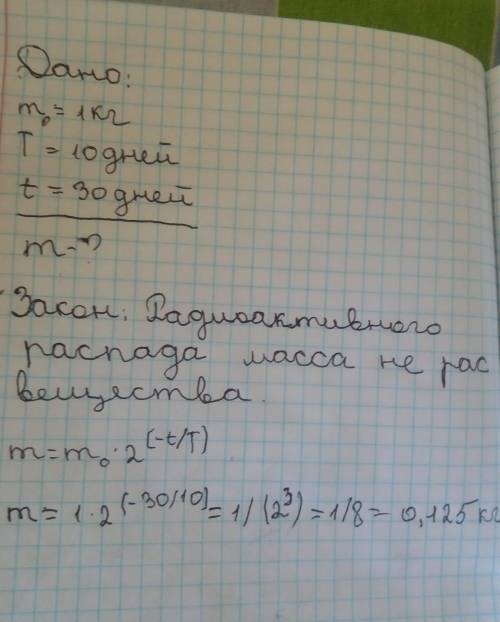 Дано:
m₀ = 1кг
T = 10дней
t = 30дней
m-?
Закон: Радиоактивного
распада масса не рас
вещества.
m=m₀·2^(-t/T)
m= 1·2^(-30/10)=1/(2³)=1/8= 0,125кг